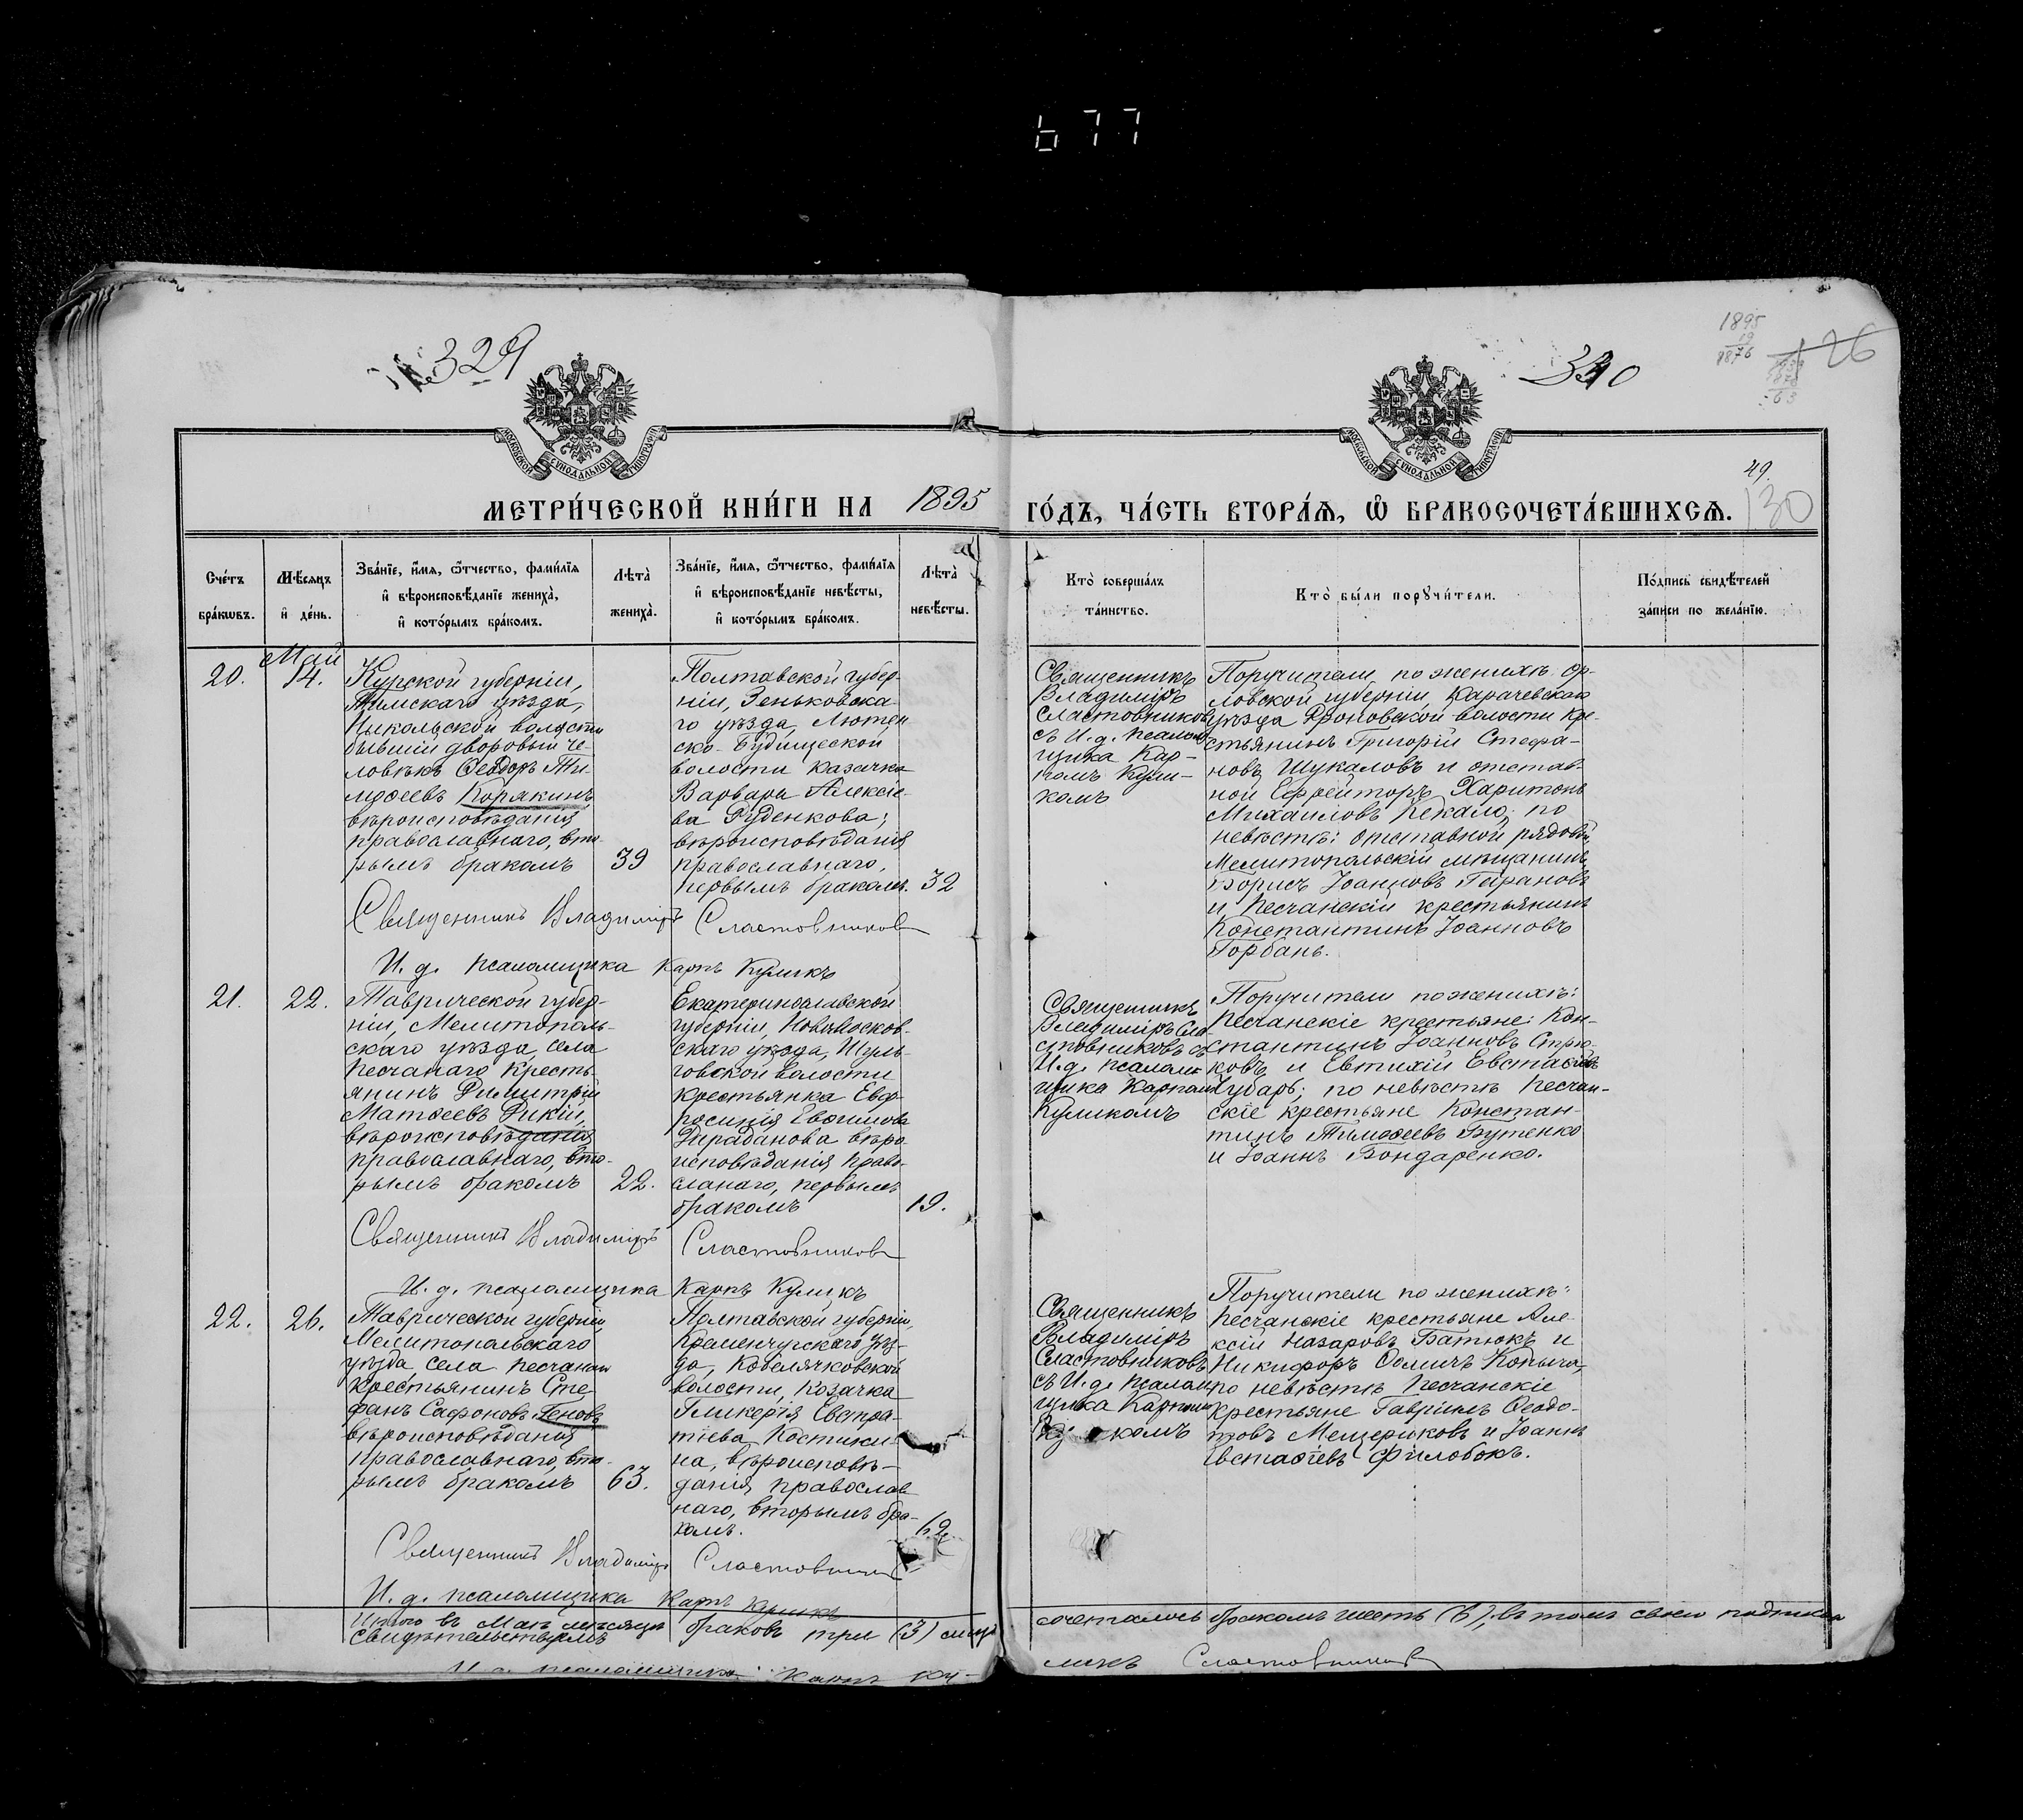 677
329
330
1895
19
1876
126
МОСКОВСКОЙ СѴНОДАЛЬНОЙ ТИПОГРАФІИ
МОСКОВСКОЙ СѴНОДАЛЬНОЙ ТИПОГРАФІИ
49.
130
МЕТРИ́ЧЕСКОЙ КНИ́ГИ НА 1895 ГО́ДЪ, ЧА́СТЬ ВТОРА́Я, Ѽ БРАКОСОЧЕТА́ВШИХСѦ.
Сче́тъ бра́кѡвъ.
Мѣ́сяцъ и҆ де́нь.
Зва́нїе, и҆́мя, ѻ҆́тчество, фами́лїя и҆ вѣроисповѣ́данїе жениха̀, и҆ кото́рымъ бра́комъ.
Лѣ́та̀ жениха̀.
Зва́нїе, и҆́мя, ѻ҆́тчество, фами́лїя и҆ вѣроисповѣ́данїе невѣ́сты, и҆ кото́рымъ бра́комъ.
Лѣ́та̀ невѣ́сты.
Кто̀ соверша́лъ та́инство.
Кто̀ бы́ли порꙋчи́тели.
По́дпись свидѣ́телей за́писи по жела́нїю.
Май
20.
14.
Курской губерніи,
Тимскаго уѣзда,
Никольской волости
бывшій дворовый че-
ловѣкъ Ѳеодоръ Ти-
моѳеевъ Корякинъ
вѣроисповѣданія
православнаго, вто-
рымъ бракомъ
39
Полтавской губер-
ніи, Зеньковска-
го уѣзда, Лютен-
ско-Будищеской
волости казачка
Варвара Алексіе-
ва Руденкова;
вѣроисповѣданія
православнаго,
первымъ бракомъ.
32
Священникъ
Владиміръ
Сластовниковъ
съ И. д. псалом-
щика Кар-
помъ Кули-
комъ
Поручители по женихѣ: Ор-
ловской губерніи, Карачевскаго
уѣзда Дроновской волости кре-
стьянинъ Григорій Стефа-
новъ Шукаловъ и отстав-
ной Ефрейторъ Харитонъ
Михаиловъ Кекало; по
невѣстѣ: отставной рядовой,
Мелитопольскій мѣщанинъ
Борисъ Іоанновъ Тарановъ
и Песчанскій крестьянинъ
Константинъ Іоанновъ
Горбань.
Священникъ Владиміръ Сластовниковъ
И. д. псаломщика Карпъ Куликъ
21.
22.
Таврической губер-
ніи, Мелитополь-
скаго уѣзда, села
Песчанаго кресть-
янинъ Димитрій
Матѳеевъ Дикій,
вѣроисповѣданія
православнаго, вто-
рымъ бракомъ
22.
Екатеринославской
губерніи, Новомосков-
скаго уѣзда, Шуль-
говской волости
крестьянка Евф-
росинія Евѳимова
Дарабанова вѣро-
исповѣданія право-
славаго, первымъ
бракомъ
19.
Священникъ
Владиміръ Сла-
стовниковъ съ
И. д. псалом-
щика Карпомъ
Куликомъ
Поручители по женихѣ:
Песчанскіе крестьяне: Кон-
стантинъ Іоанновъ Стрю-
ковъ и Евтихій Евстаѳіевъ
Чубарь; по невѣстѣ Песчан-
скіе крестьяне Констан-
тинъ Тимоѳеевъ Бутенко
и Іоаннъ Бондаренко.
Священникъ Владиміръ Сластовниковъ
И. д. псаломщика Карпъ Куликъ
22.
26.
Таврической губерніи,
Мелитопольскаго
уѣзда села Песчанаго
крестьянинъ Сте-
фанъ Сафоновъ Геновъ
вѣроисповѣданія
православнаго, вто-
рымъ бракомъ
63.
Полтавской губерніи,
Кременчугскаго уѣз-
да, Кобелячковской
волости, козачка
Гликерія Евстра-
тіева Костюки-
на, вѣроисповѣ-
данія православ-
наго, вторымъ бра-
комъ.
62
Священникъ
Владиміръ
Сластовниковъ
съ И. д. псалом-
щика Карпомъ
комъ
Поручители по женихѣ:
Песчанскіе крестьяне Але-
ксій Назаровъ Батюкъ и
Никифоръ Ѳомичъ Копыча,
по невѣстѣ Песчанскіе
крестьяне Гавріилъ Ѳеодо-
товъ Мещеряковъ и Іоаннъ
Евстаѳіевъ Филобокъ.
Священникъ Владиміръ Сластовниковъ
И. д. псаломщика Карпъ Куликъ
Итого въ Маѣ мѣсяцѣ браковъ три (3) лицъ сочеталось бракомъ шесть (6), въ томъ своею подписью
свидѣтельствуемъ
И. д. псаломщика Карпъ Ку-ликъ Сластовниковъ